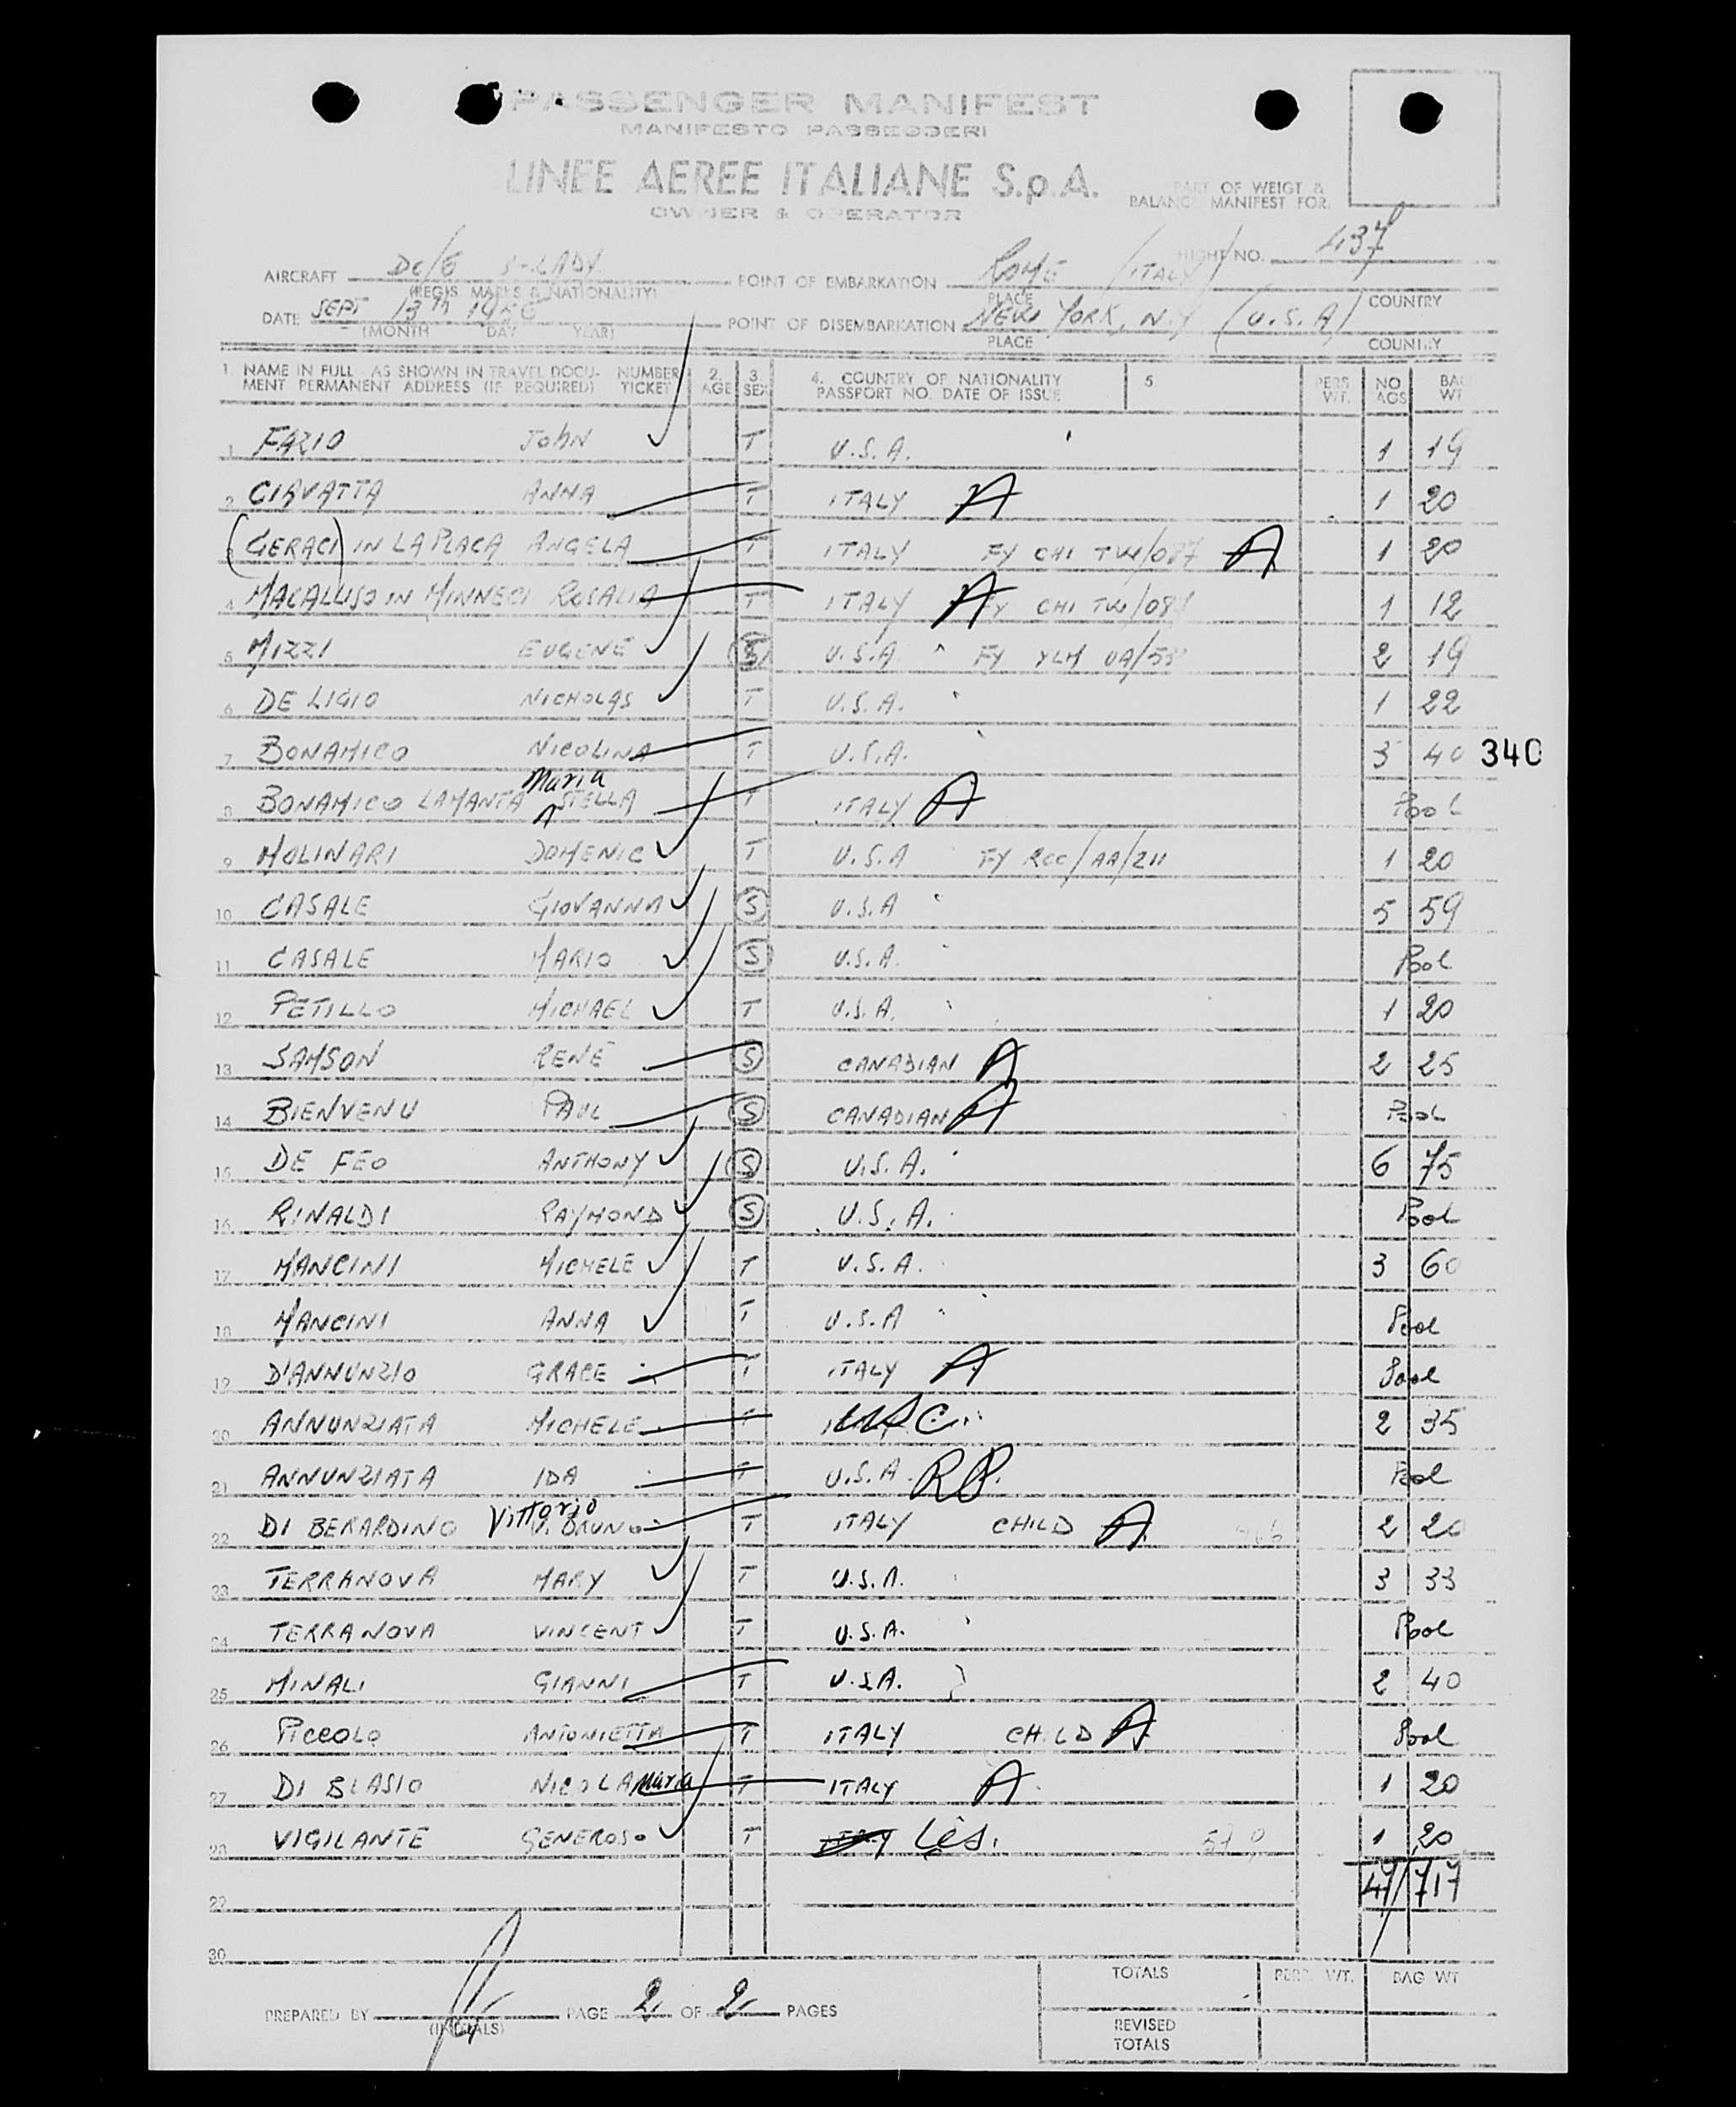 PASSENGER MANIFEST
MANIFESTO PASSEGGERI
LINEE AEREE ITALIANE S.p.A.
OWNER & OPERATOR
PART OF WEIGT &
BALANCE MANIFEST FOR:
FLIGHT NO. 437
AIRCRAFT DC/6 I-LADY POINT OF EMBARKATION ROME (ITALY)
(REGIS MARKS & NATIONALITY) PLACE COUNTRY
DATE SEPT 13th POINT OF DISEMBARKATION NEW YORK, N.Y (U.S.A)
(MONTH DAY YEAR) PLACE COUNTRY
1. NAME IN FULL AS SHOWN IN TRAVEL DOCU- NUMBER 2. 3. 4. COUNTRY OF NATIONALITY 5 PERS NO BAG
MENT PERMANENT ADDRESS (IF REQUIRED) TICKET AGE SEX PASSPORT NO. DATE OF ISSUE WT. AGS WT
1 FAZIO JOHN T U.S.A. 1 19
2 CIAVATTA ANNA T ITALY A 1 20
3 (GERACI) IN LA PLACA ANGELA T ITALY FY CHI TW/087 A 1 20
4 MACALUSO IN MINNECI ROSALIA T ITALY A FY CHI TW/087 1 12
5 MIZZI EUGENE S U.S.A. FY YLM UA/ 2 19
6 DE LIGIO NICHOLAS T U.S.A. 1 22
7 BONAMICO NICOLINA T U.S.A. 3 40 340
8 BONAMICO LAMANTA Maria STELLA T ITALY A Pool
9 MOLINARI DOMENIC T U.S.A FY RCC/AA/211 1 20
10 CASALE GIOVANNA S U.S.A 5 59
11 CASALE MARIO S U.S.A. Pool
12 PETILLO MICHAEL T U.S.A. 1 20
13 SAMSON RENE S CANADIAN A 2 25
14 BIENVENU PAUL S CANADIAN A Pool
15 DE FEO ANTHONY S U.S.A. 6 75
16 RINALDI RAYMOND S U.S.A. Pool
17 MANCINI MICHELE T U.S.A. 3 60
18 MANCINI ANNA T U.S.A Pool
19 D'ANNUNZIO GRACE T ITALY A Pool
20 ANNUNZIATA MICHELE T USC 2 35
21 ANNUNZIATA IDA T U.S.A. RP. Pool
22 DI BERARDINO Vittorio V. BRUNO T ITALY CHILD A 2 20
23 TERRANOVA MARY T U.S.A. 3 33
24 TERRANOVA VINCENT T U.S.A. Pool
25 MINALI GIANNI T U.S.A. 2 40
26 PICCOLO ANTONIETTA T ITALY CHILD A Pool
27 DI BLASIO NICOLA Maria T ITALY A 1 20
28 VIGILANTE GENEROSO T 1 20
29 47/717
30
TOTALS PERS. WT. BAG WT
PREPARED BY PAGE 2 OF 2 PAGES
(INITIALS)
REVISED
TOTALS